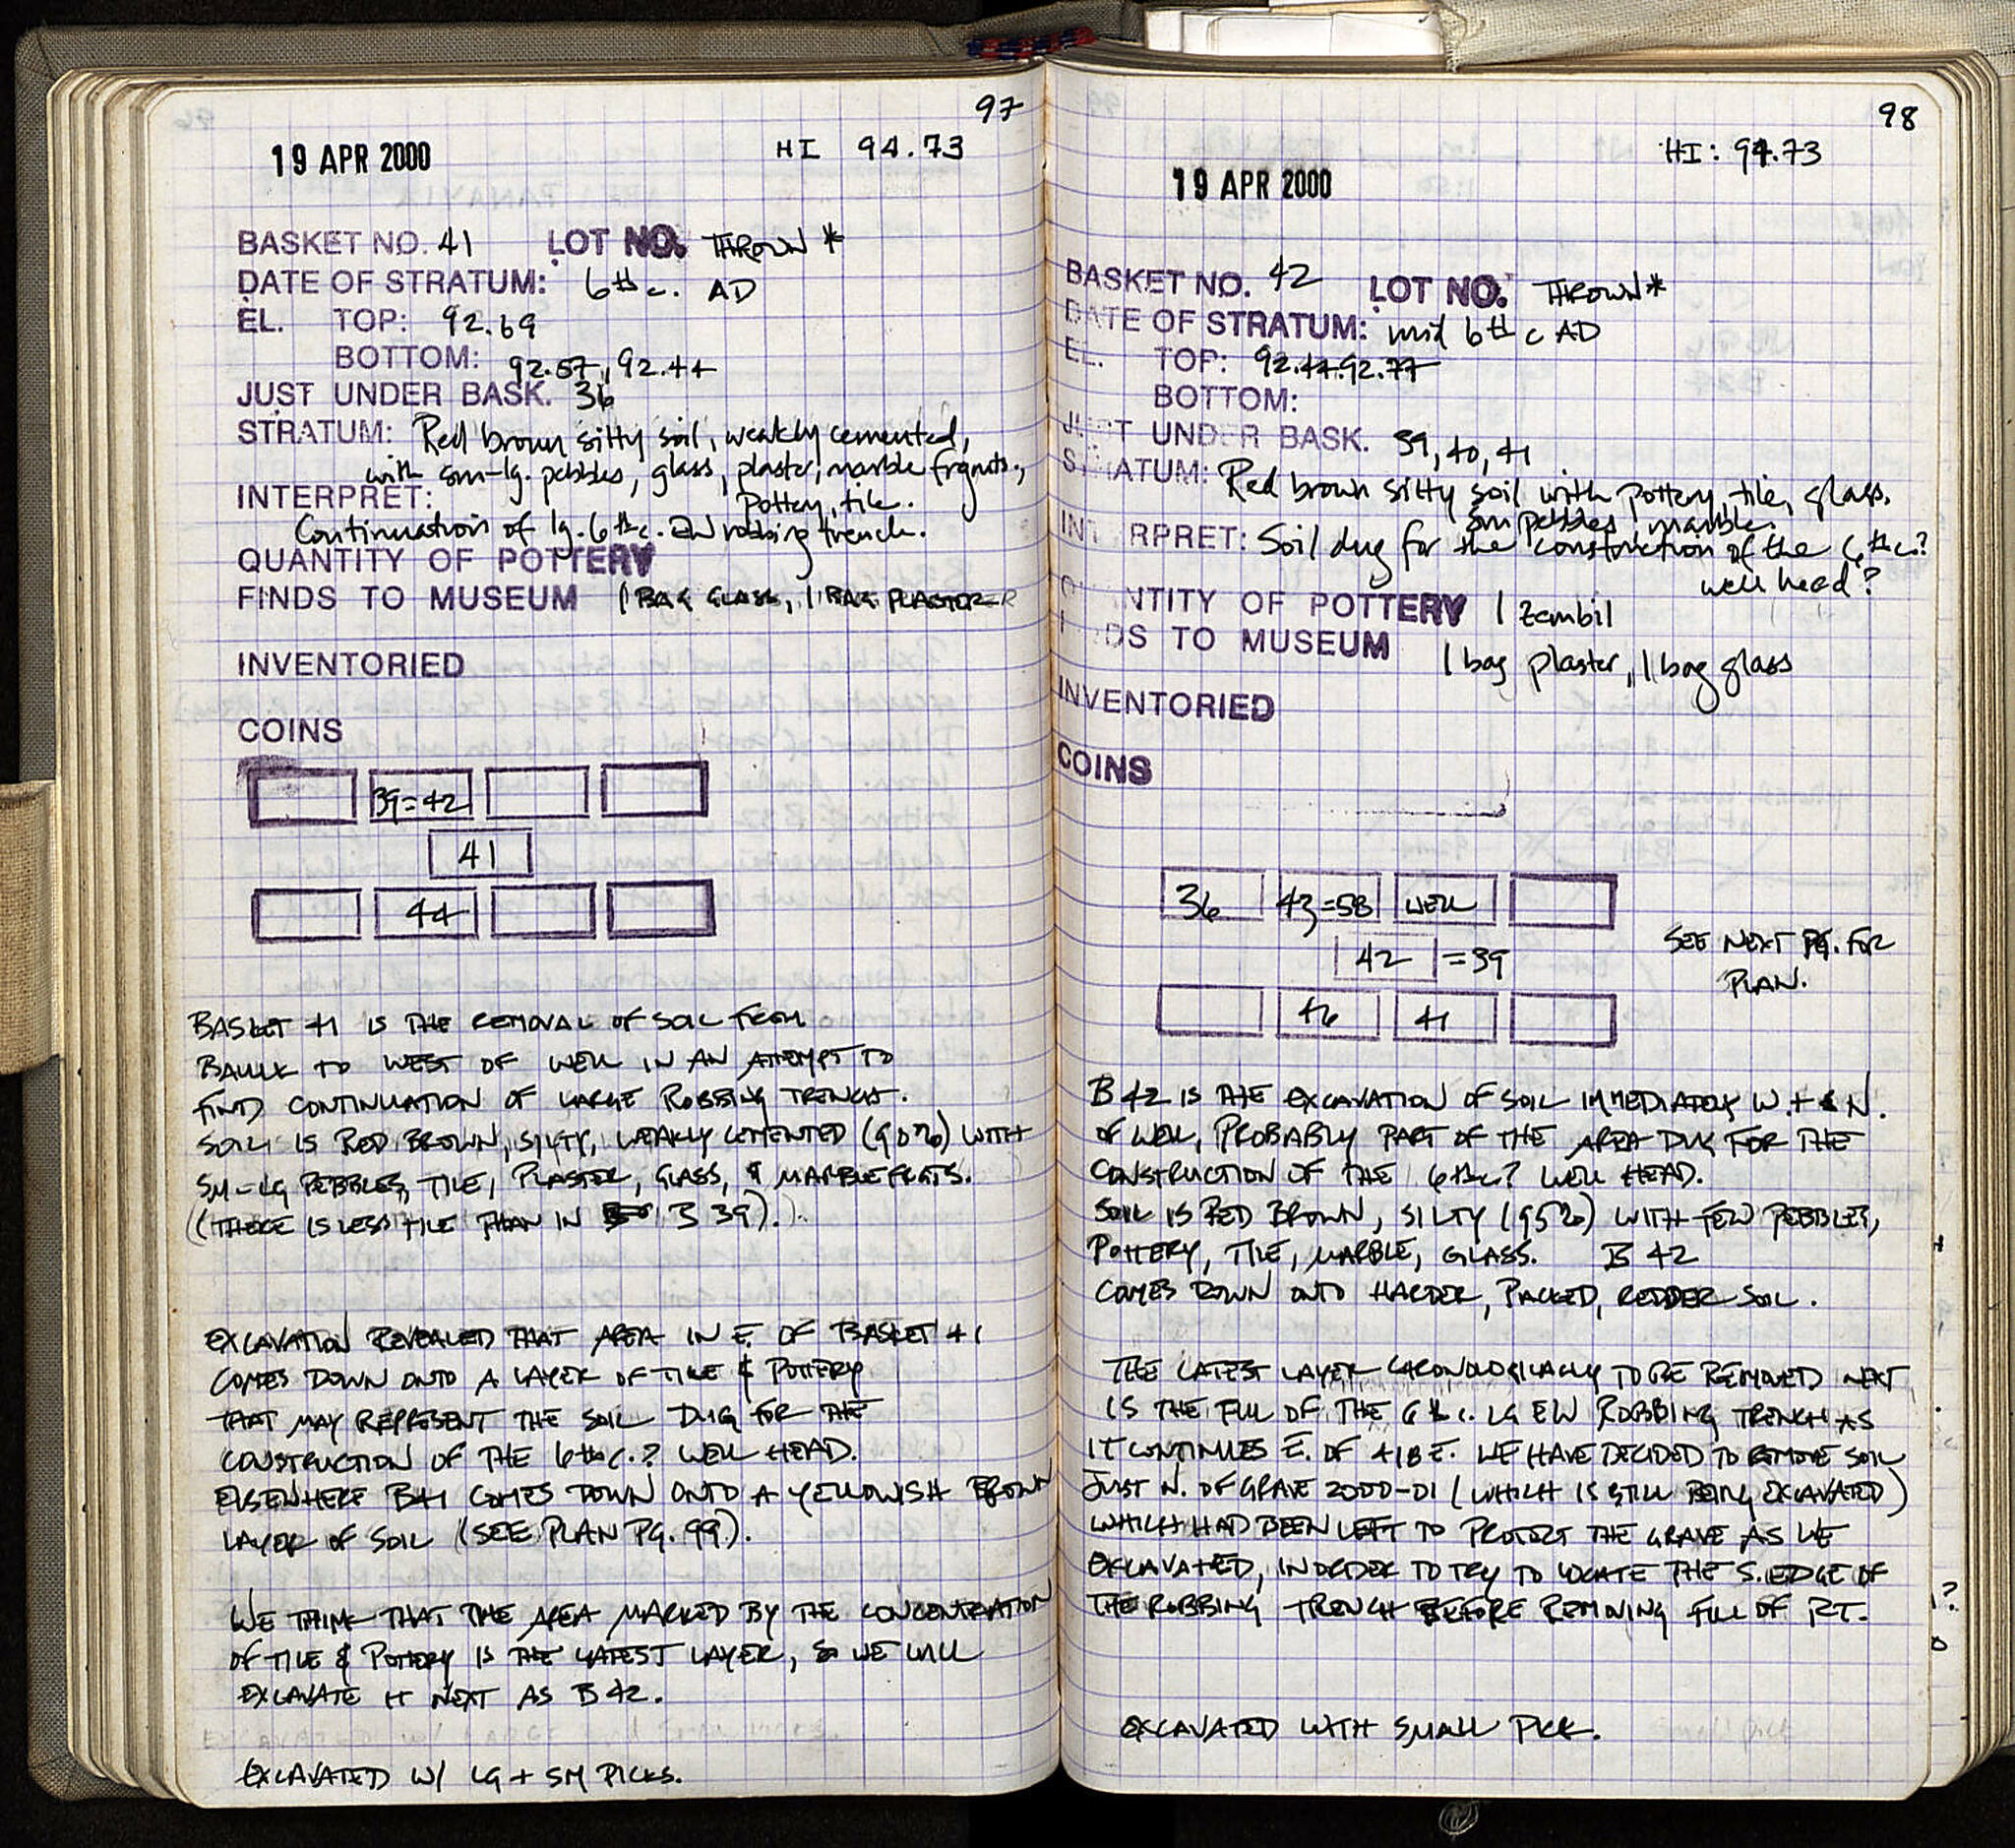 97
19 APR 2000 HI 94.73
BASKET NO. 41 LOT NO. THROWN *
DATE OF STRATUM: 6th c. AD
EL. TOP: 92.69
BOTTOM: 92.57, 92.44
JUST UNDER BASK. 36
STRATUM: Red brown silty soil, weakly cemented,
with sm-lg. pebbles, glass, plaster, marble frgmts.,
pottery, tile.
INTERPRET:
Continuation of lg. 6th c. EW robbing trench.
QUANTITY OF POTTERY
FINDS TO MUSEUM 1 BAG GLASS, 1 BAG PLASTER
INVENTORIED
COINS
39=42
41
44
BASKET 41 IS THE REMOVAL OF SOIL FROM
BAULK TO WEST OF WELL IN AN ATTEMPT TO
FIND CONTINUATION OF LARGE ROBBING TRENCH.
SOIL IS RED BROWN, SILTY, WEAKLY CEMENTED (90%) WITH
SM-LG PEBBLES, TILE, PLASTER, GLASS, & MARBLE FRGTS.
(THERE IS LESS TILE THAN IN B 39).
EXCAVATION REVEALED THAT AREA IN E. OF BASKET 41
COMES DOWN ONTO A LAYER OF TILE & POTTERY
THAT MAY REPRESENT THE SOIL DUG FOR THE
CONSTRUCTION OF THE 6th c.? WELL HEAD.
ELSEWHERE B41 COMES DOWN ONTO A YELLOWISH BROWN
LAYER OF SOIL (SEE PLAN PG. 99).
WE THINK THAT THE AREA MARKED BY THE CONCENTRATION
OF TILE & POTTERY IS THE LATEST LAYER, SO WE WILL
EXCAVATE IT NEXT AS B 42.
EXCAVATED W/ LG + SM PICKS.
98
HI: 94.73
19 APR 2000
BASKET NO. 42 LOT NO. THROWN*
DATE OF STRATUM: mid 6th c AD
EL. TOP: 92.44-92.77
BOTTOM:
JUST UNDER BASK. 39, 40, 41
STRATUM: Red brown silty soil with pottery, tile, glass,
sm pebbles, marble.
INTERPRET: Soil dug for the construction of the 6th c.?
well head?
QUANTITY OF POTTERY 1 zembil
FINDS TO MUSEUM 1 bag plaster, 1 bag glass
INVENTORIED
COINS
36 43=58 WELL
42 =39
46 41
SEE NEXT PG. FOR
PLAN.
B 42 IS THE EXCAVATION OF SOIL IMMEDIATELY W. + N.
OF WELL, PROBABLY PART OF THE AREA DUG FOR THE
CONSTRUCTION OF THE 6th c? WELL HEAD.
SOIL IS RED BROWN, SILTY (95%) WITH FEW PEBBLES,
POTTERY, TILE, MARBLE, GLASS. B 42
COMES DOWN ONTO HARDER, PACKED, REDDER SOIL.
THE LATEST LAYER CHRONOLOGICALLY TO BE REMOVED NEXT
IS THE FILL OF THE 6th c. LG EW ROBBING TRENCH AS
IT CONTINUES E. OF 418 E. WE HAVE DECIDED TO REMOVE SOIL
JUST N. OF GRAVE 2000-01 (WHICH IS STILL BEING EXCAVATED)
WHICH HAD BEEN LEFT TO PROTECT THE GRAVE AS WE
EXCAVATED, IN ORDER TO TRY TO LOCATE THE S. EDGE OF
THE ROBBING TRENCH BEFORE REMOVING FILL OF RT.
EXCAVATED WITH SMALL PICK.